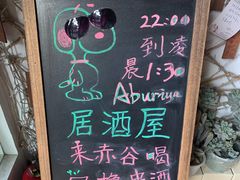 22:00
到凌
晨1:30
Aburiya
居酒屋
来赤谷喝